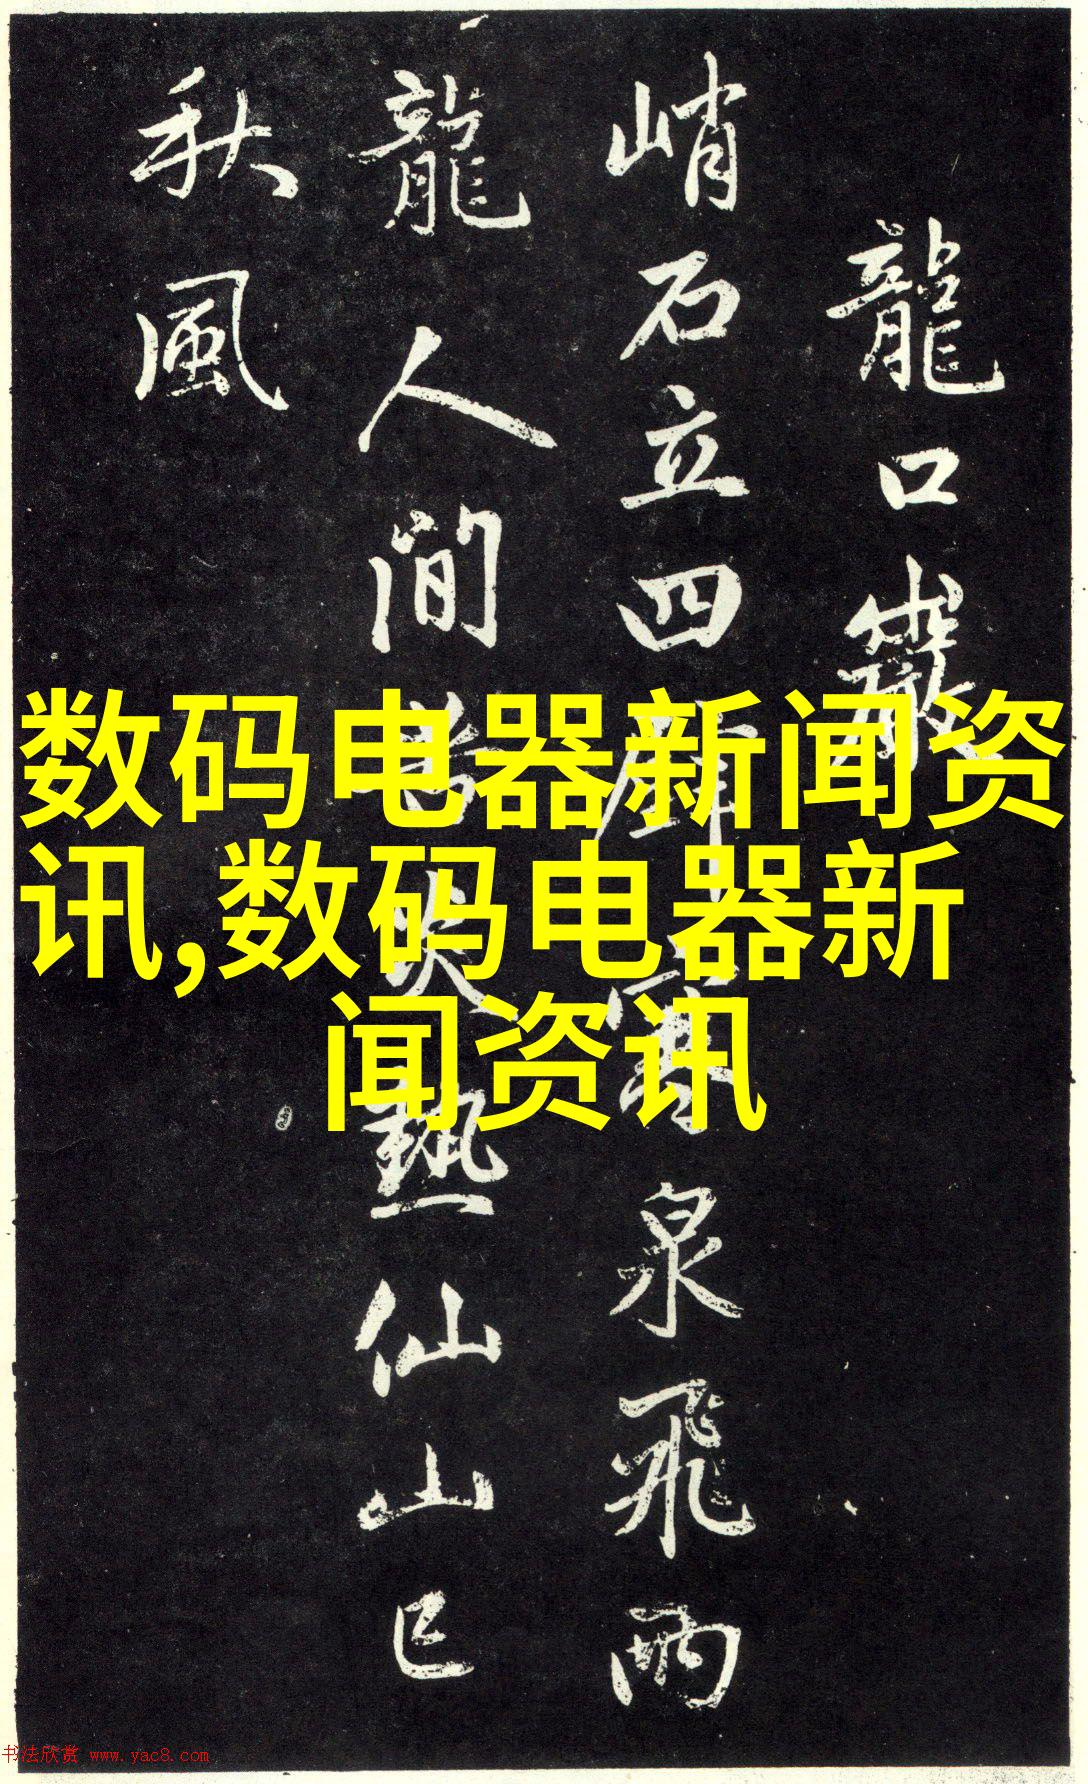 数码电器新闻资
讯,数码电器新
闻资讯
龍口巖
峭石立四壁寒泉飛兩
龍人間苦炎熱仙山已
秋風
书法欣赏 www.yac8.com